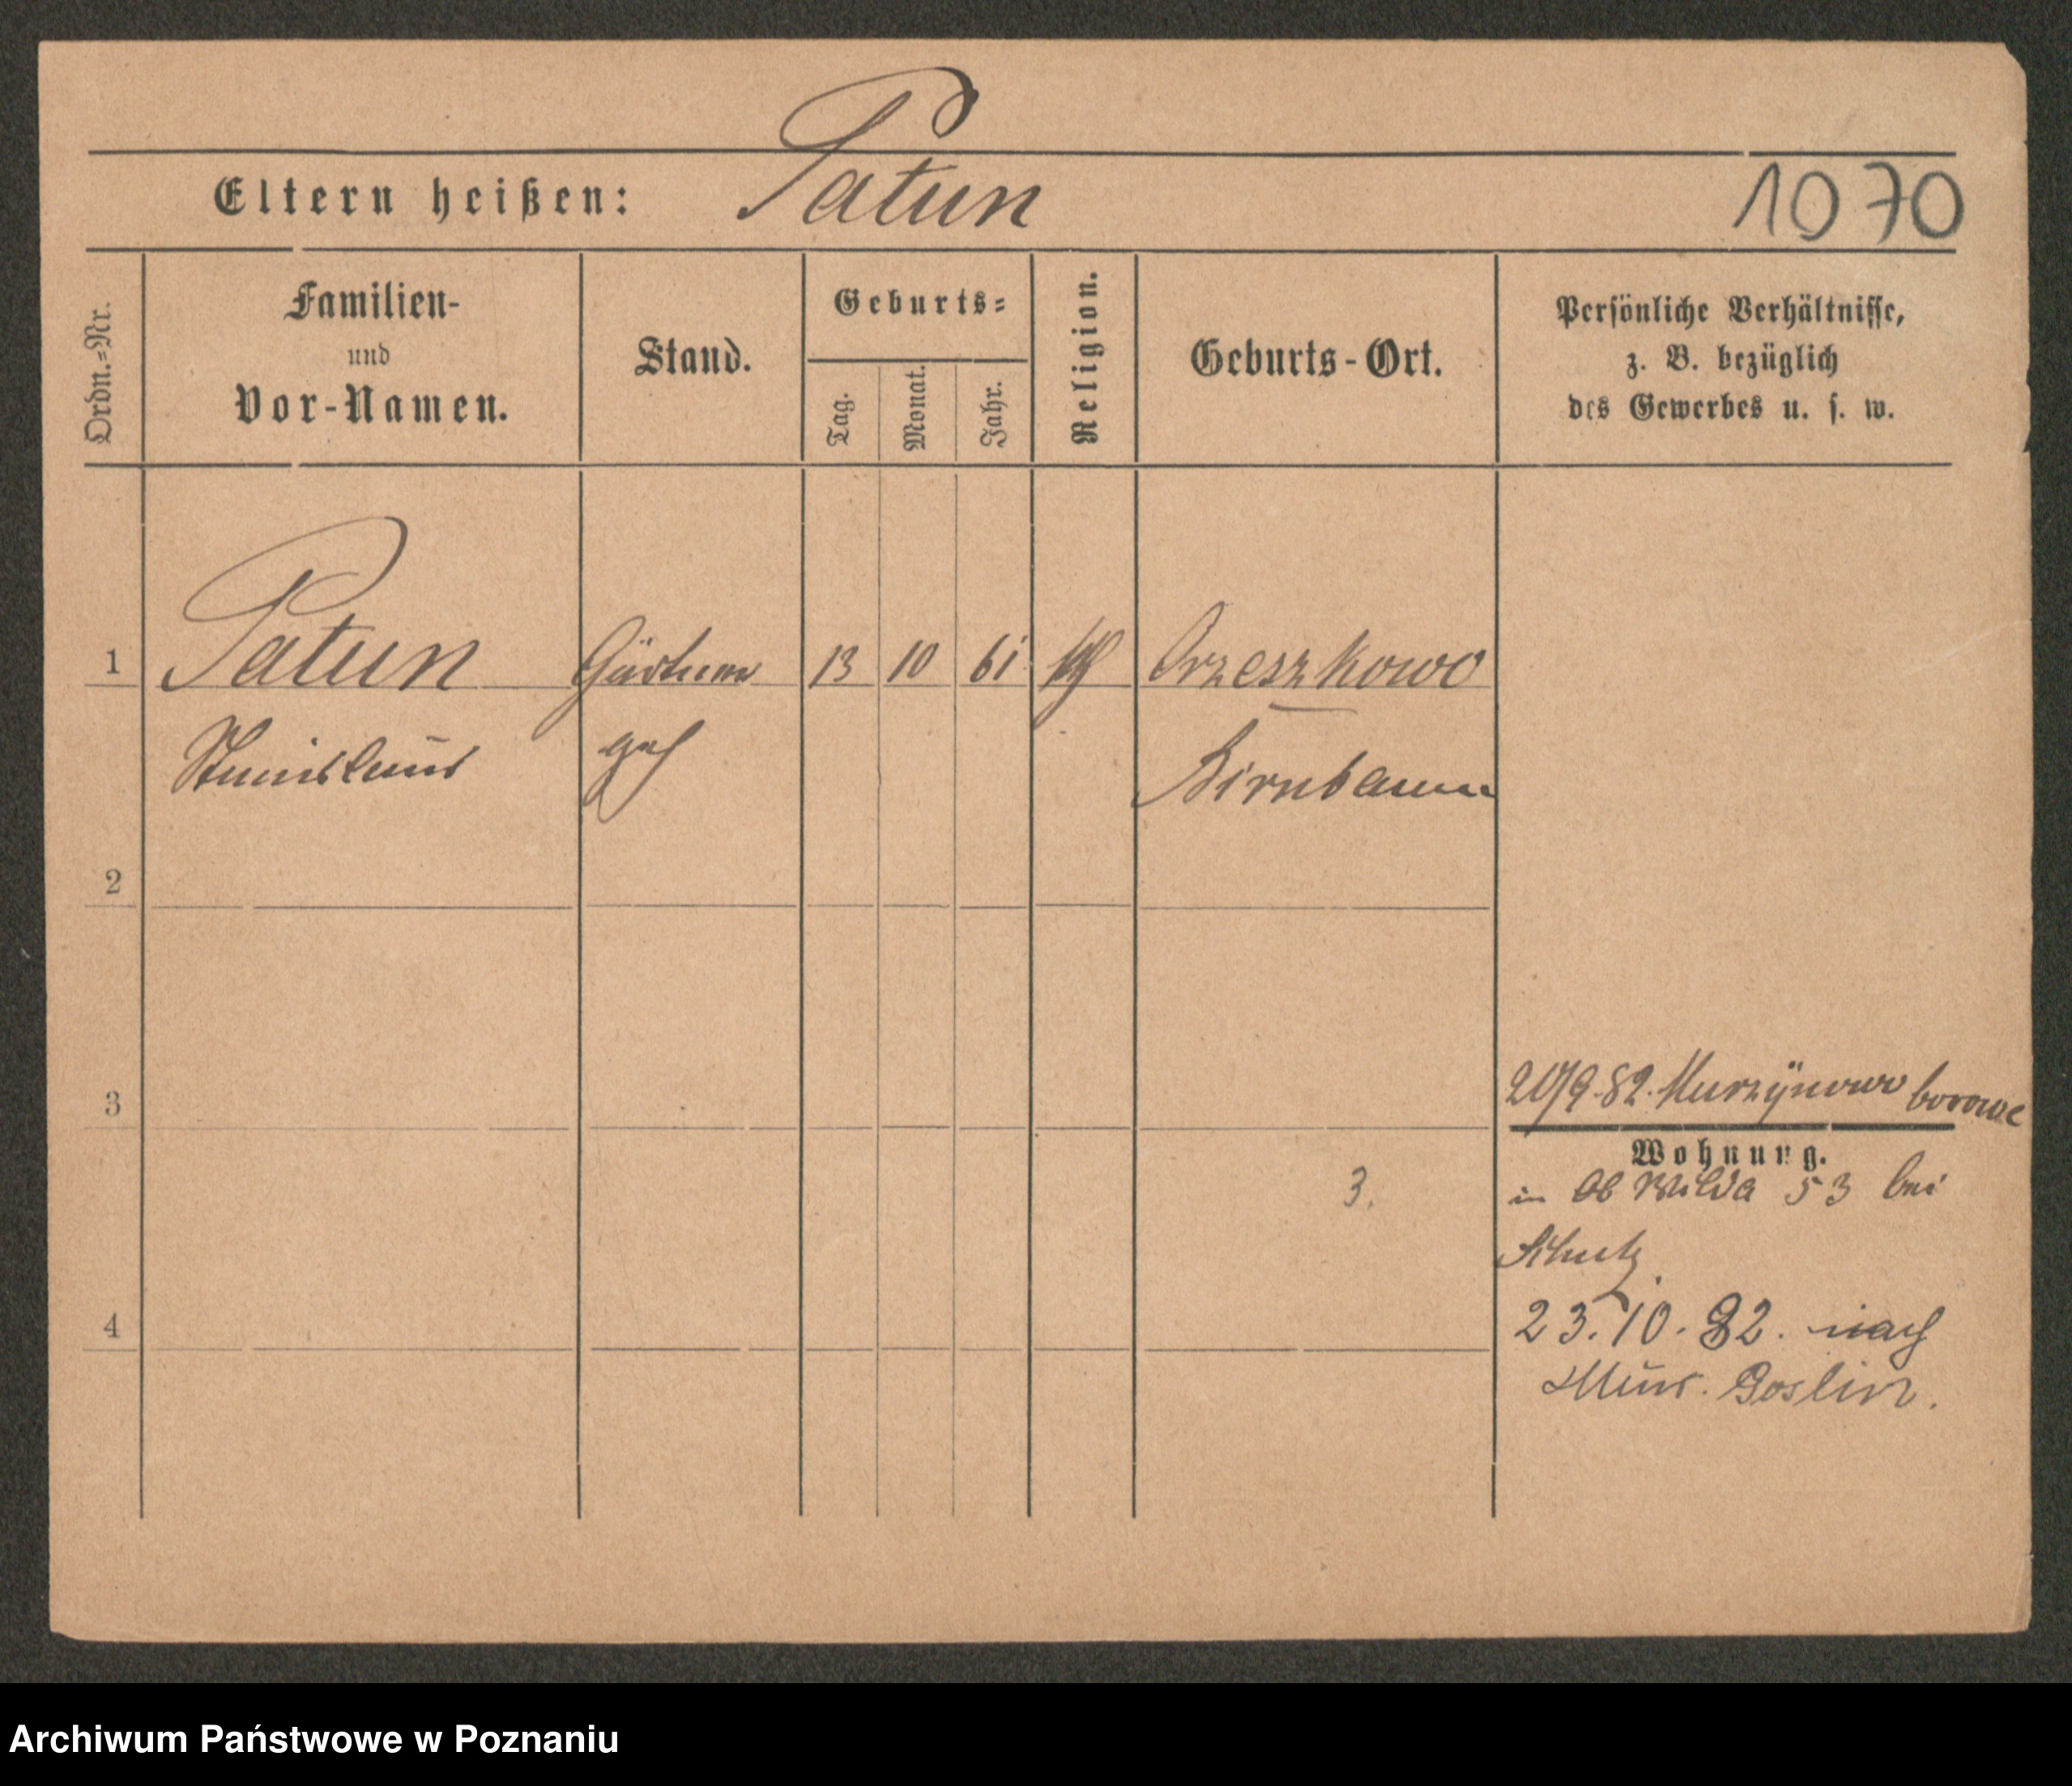 Patun
Eltern heißen:
1070
Ordn.=Nr.
Familien-
und
Vor-Namen.
Stand.
Geburts=
Tag.
Monat.
Jahr.
Religion.
Geburts-Ort.
Persönliche Verhältnisse,
z. B. bezüglich
des Gewerbes u. s. w.
1 Patun 13 10 61 kth Orzeszkowo
Stanislaus Birnbaum
2
3
20/9.82. Murzynowo borowe
Wohnung.
3. in Ob Wilda 53 bei
4
23.10.82. nach
Mur. Goslin.
Archiwum Państwowe w Poznaniu